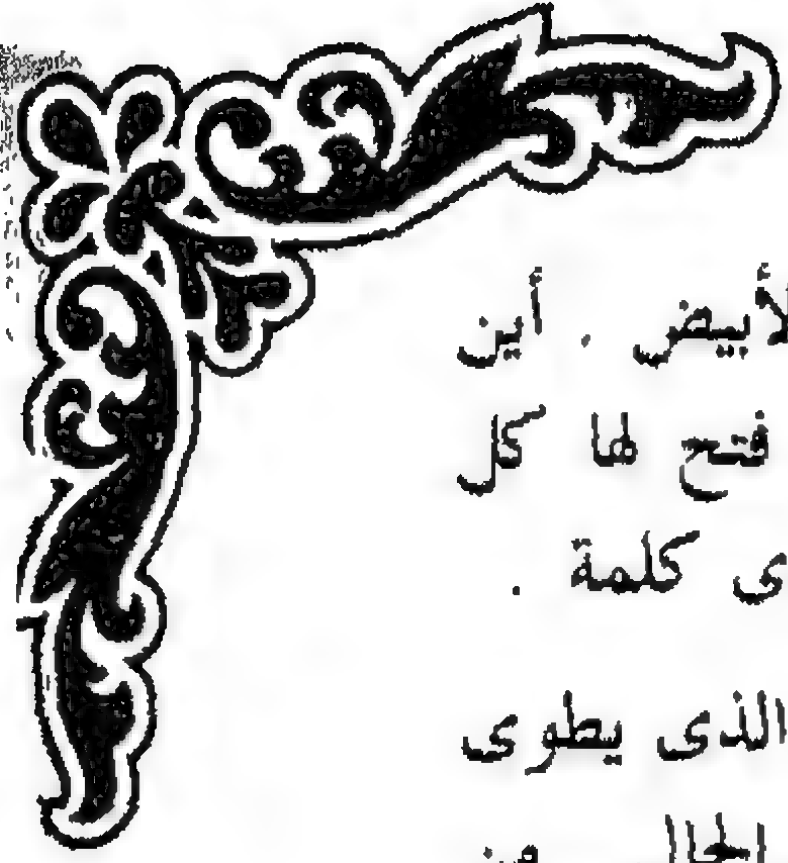 لأبيض . أين
فتح لها كل
ى كلمة .
الذى يطوى